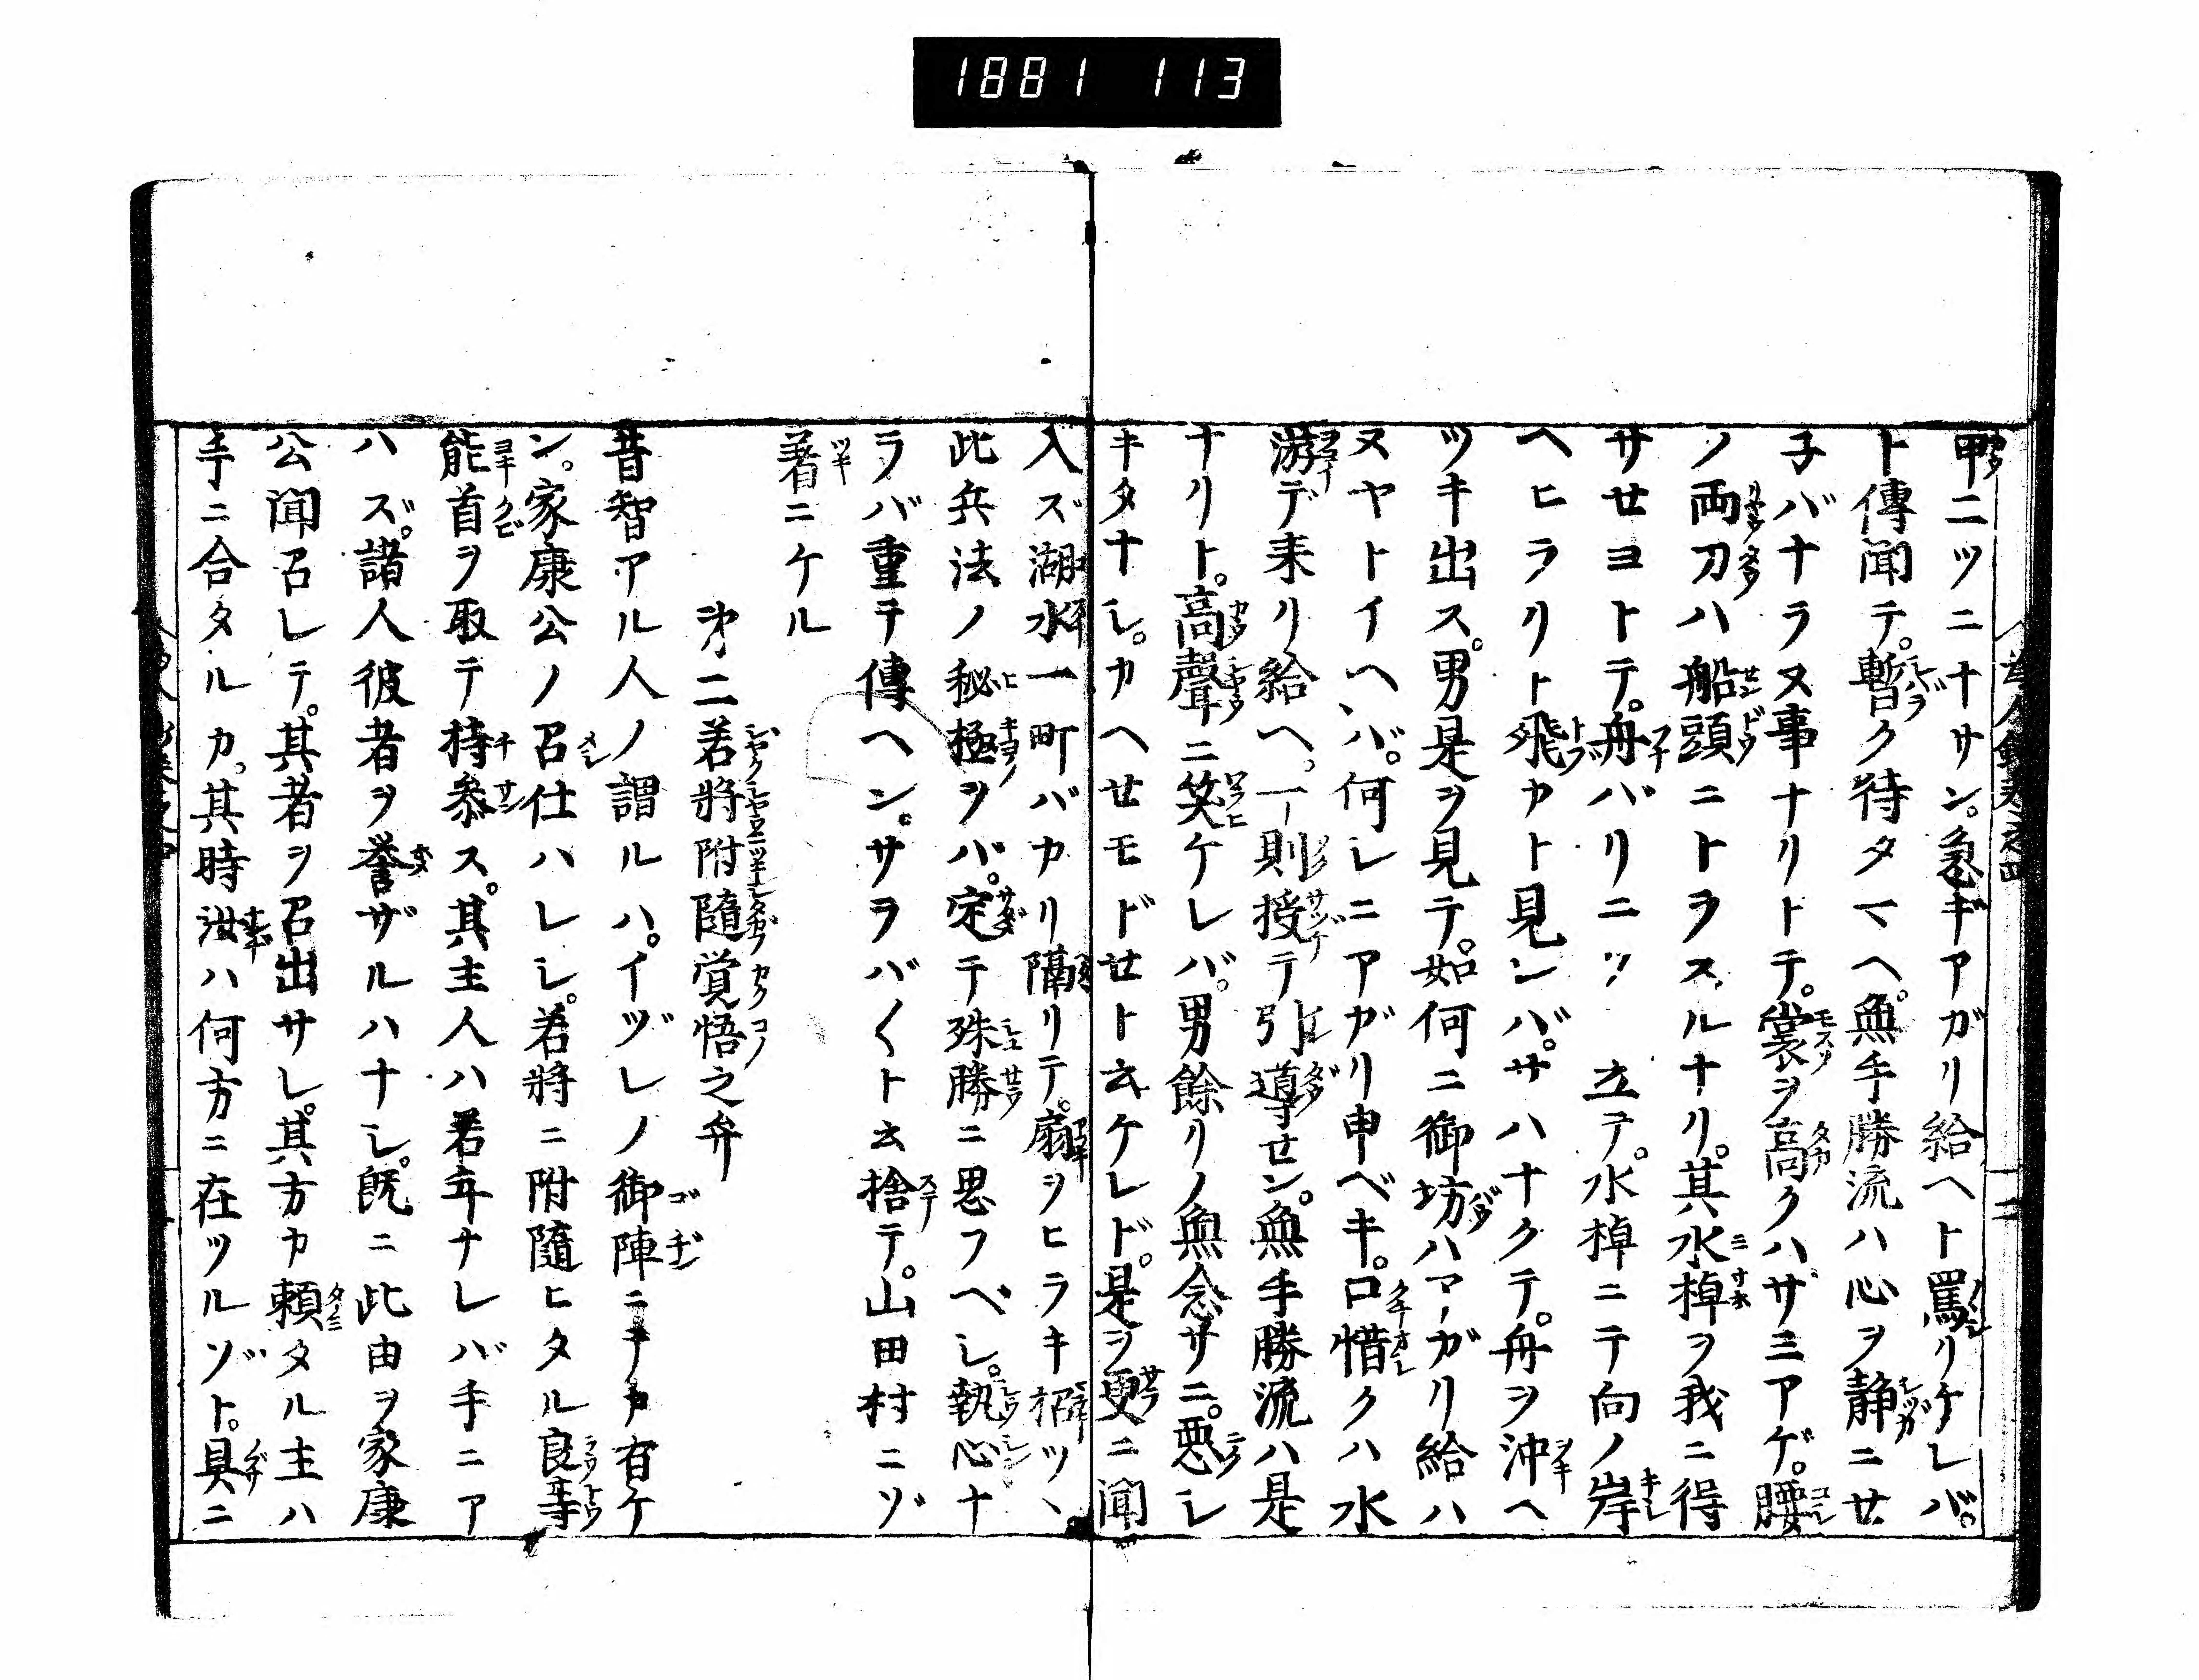 1881 113
甲ニツニナサン。急ギアガリ給ヘト罵リケレバ。
ト傳聞テ。暫ク待タマヘ。無手勝流ハ心ヲ静ニせ
子バナラヌ事ナリトテ。裳ヲ高クハザミアゲ。腰
ノ両刀ハ船頭ニトラスルナリ。其水棹ヲ我ニ得
サせヨトテ。舟バリニツ立テ。水棹ニテ向ノ岸
ヘヒラリト飛カト見ンバ。サハナクテ。舟ヲ沖ヘ
ツキ出ス。男是ヲ見テ。如何ニ御坊ハアガリ給ハ
ヌヤトイヘバ。何レニアガリ申ベキ。口惜クハ水
游デ来リ給ヘ。一則授テ引導せン。無手勝流ハ是
ナリト。高聲ニ笑ケレバ。男餘リノ無念サニ。悪シ
キタナシ。カヘせモドせト云ケレド。是ヲ更ニ聞
入ズ湖水一町バカリ隔リテ。扇ヲヒラキ招ツヽ
此兵法ノ秘極ヲバ。定テ殊勝ニ思フベシ。執心ナ
ラバ重テ傳ヘン。サラバ〱ト云捨テ。山田村ニゾ
着ニケル
㐧二若將附隨覚悟之弁
昔智アル人ノ謂ルハ。イヅレノ御陣ニテカ有ケ
ン。家康公ノ召仕ハレシ。若將ニ附隨ヒタル良等
能首ヲ取テ持参ス。其主人ハ若年ナレバ手ニア
ハズ。諸人彼者ヲ誉ザルハナシ。既ニ此由ヲ家康
公聞召レテ。其者ヲ召出サレ。其方カ頼タル主ハ
手ニ合タルカ。其時汝ハ何方ニ在ツルゾト。具ニ